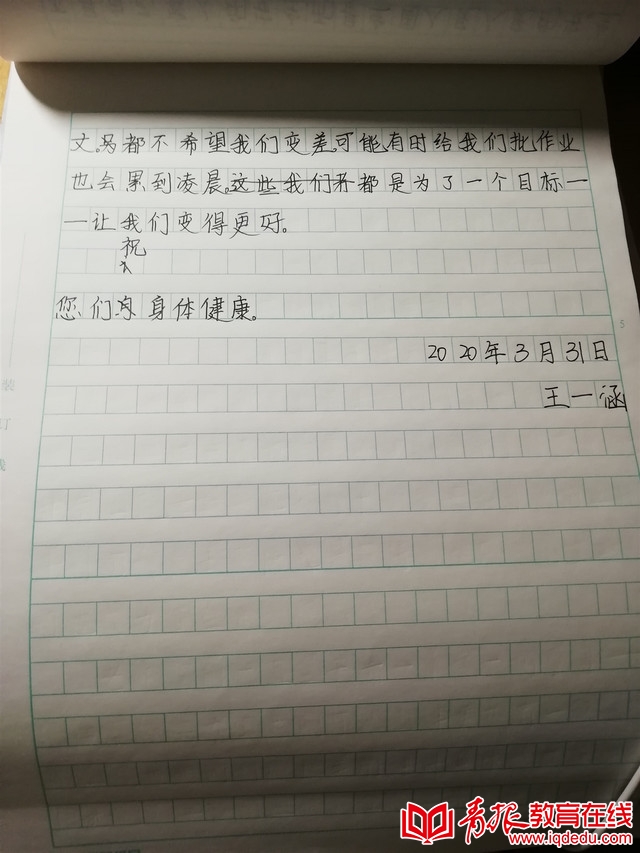 都不希望我们变差。可能有时给我们批作业
也会累到凌晨。这些我们都是为了一个目标—
—让我们变得更好。
祝
您们身体健康。
2020年3月31日
王一涵
5
装
订
线
青报教育在线
www.iqdedu.com